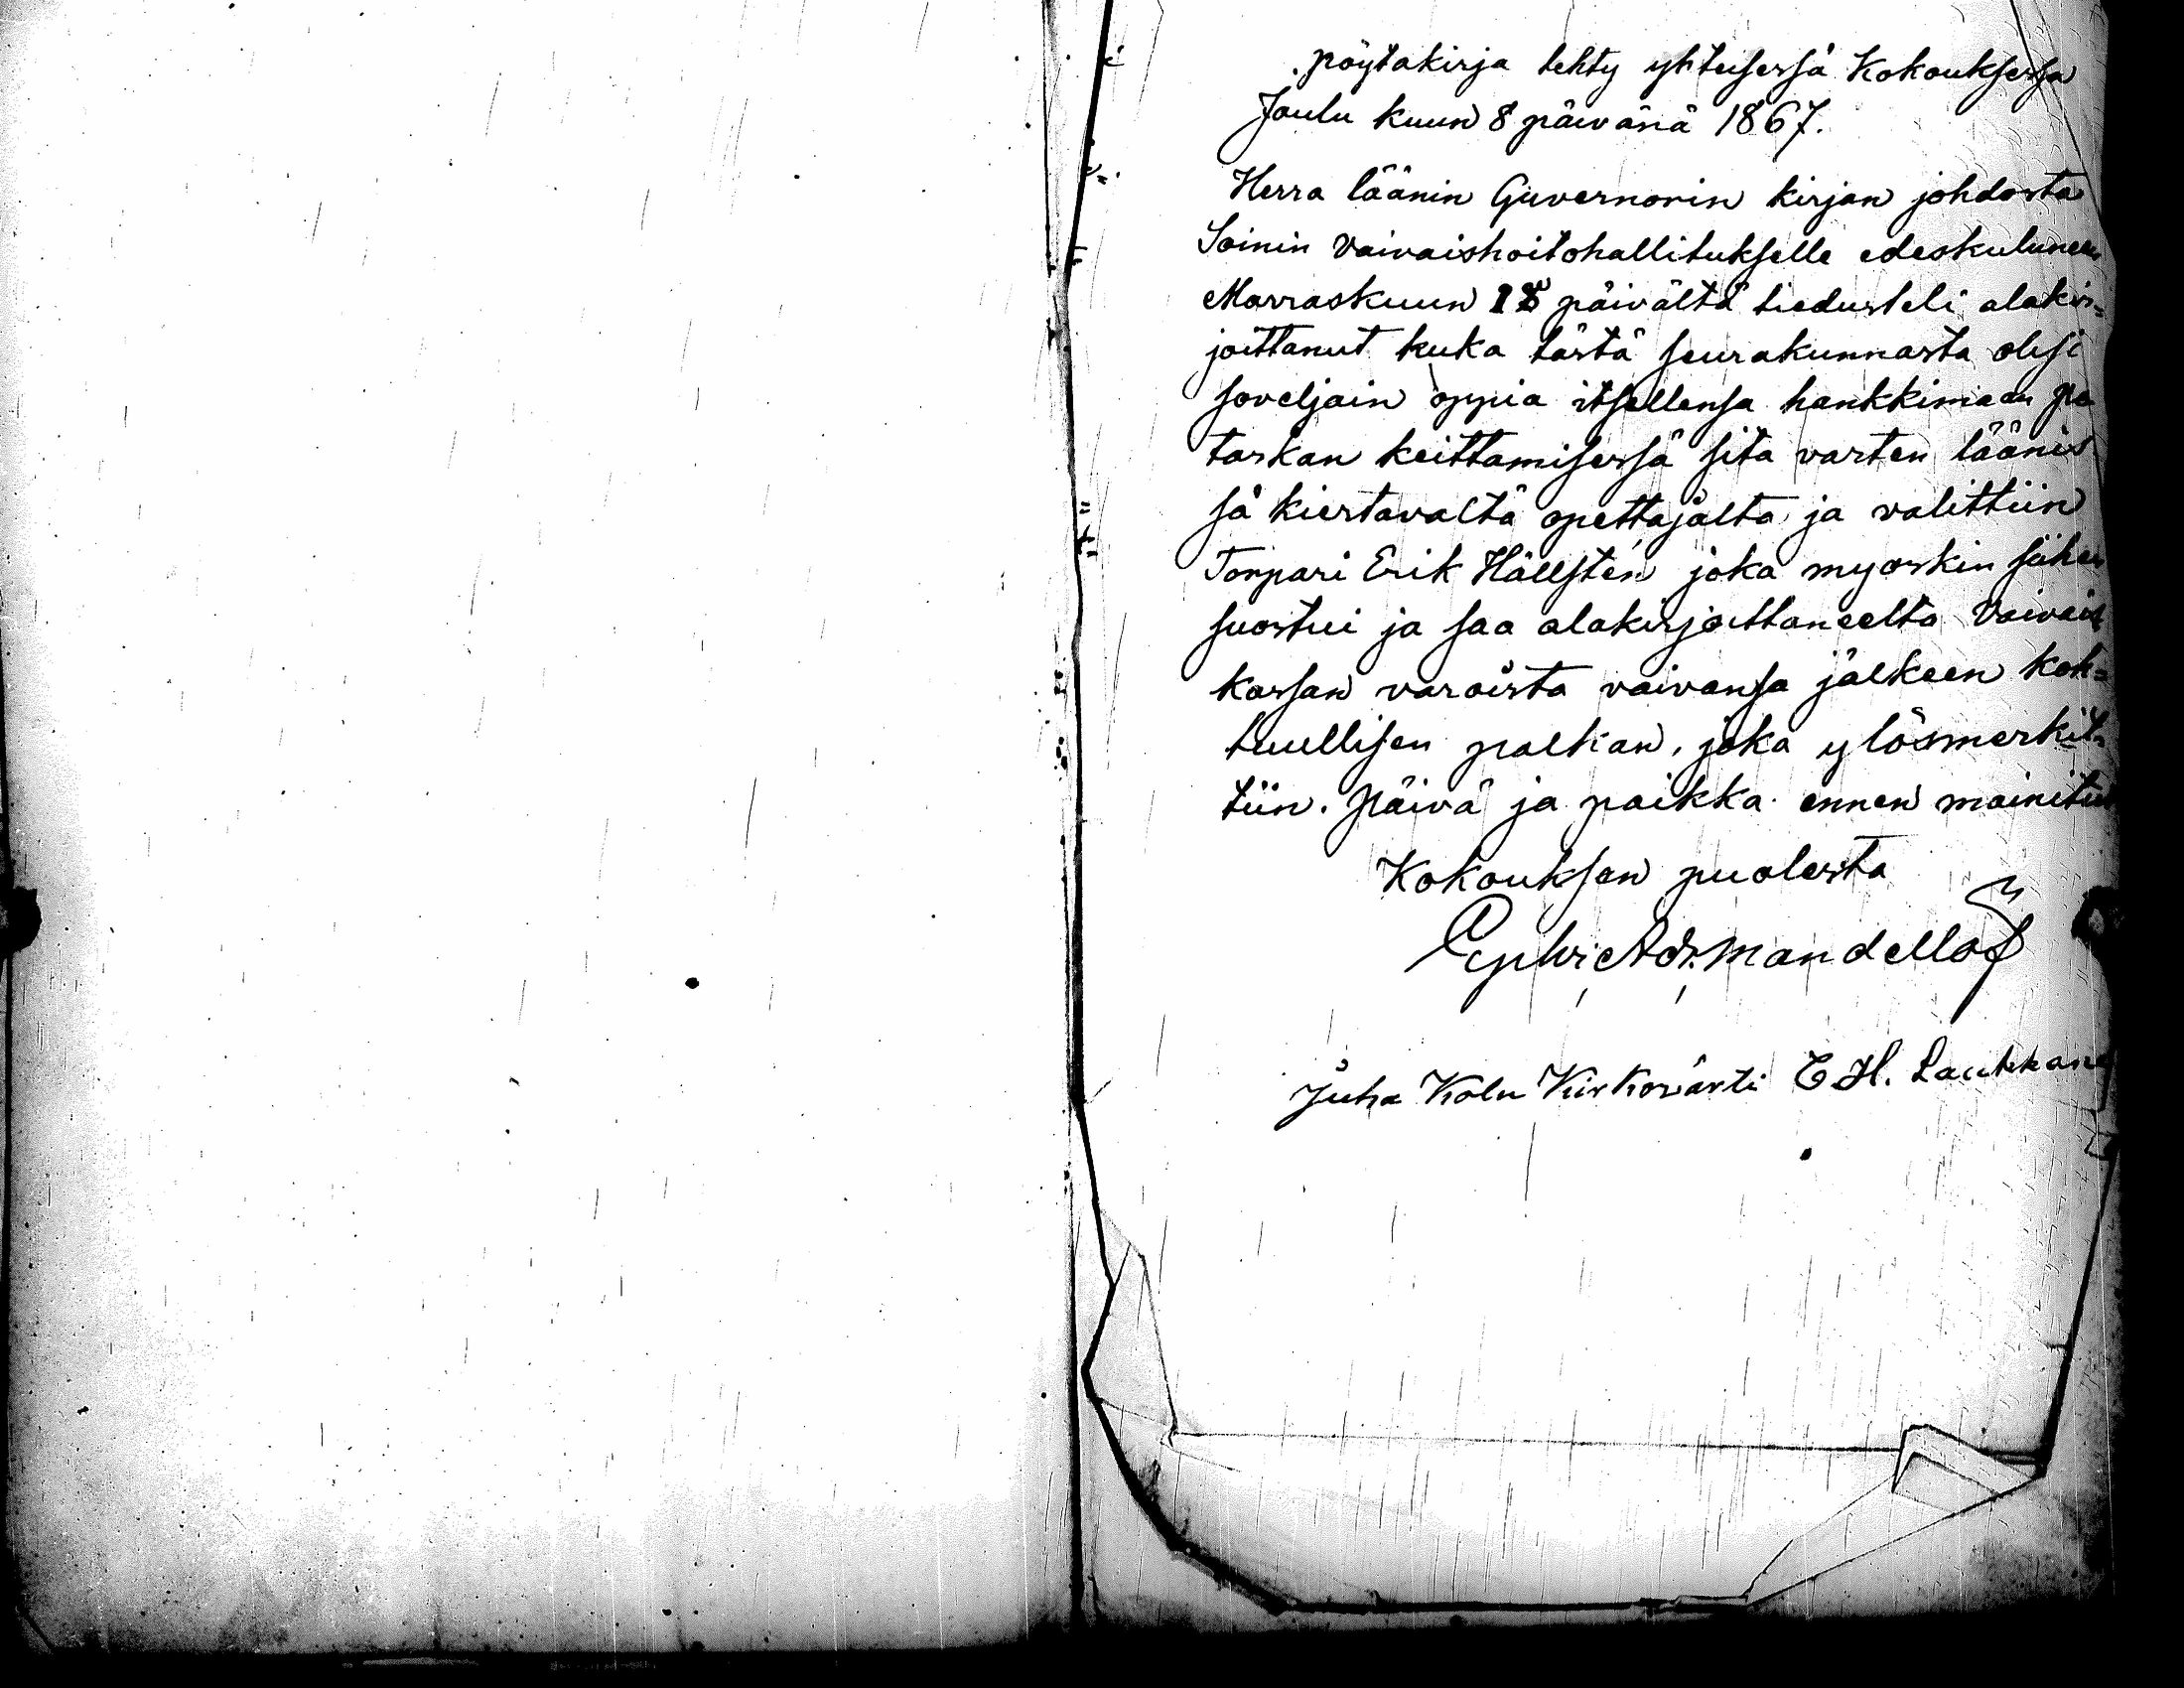 pöytakirja tehty yhteisessä Kokouksessa
Joulu kuun 8 päivänä 1867.
Herra läänin Guvernorin kirjan johdosta
Soinin vaivaishoitohallitukselle edeskulunen
Marraskuun päivältä tiedusteli alakir=
joittanut kuka tästä seurakunnasta olisi
soveljain oppia itsellensa hankkimaan po
taskan keittamisessä sita varten läänis
sä kiertavaltä opettajalta ja valittiin
Torpari Erik Hällstén joka myoskin siihen
suostui ja saa alakirjoittaneelta vaivais
kassan varoista vaivansa jälkeen koh=
tuullisen palkan, joka ylösmerkit=
tiin. Päivä ja paikka ennen mainitut
Kokouksen puolesta
Mandellöf
Juha Kolu Kirkovärti E H. Laukkane